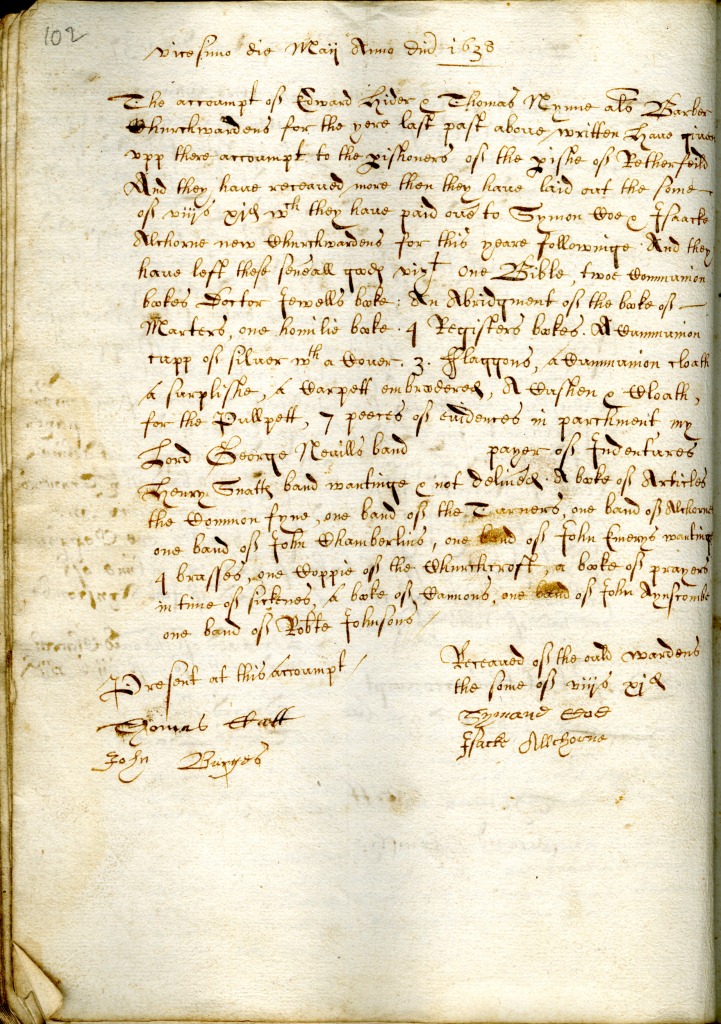 102
vicesimo die Maij Anno Dni 1638
The accoumpt of Edward Hider & Thomas Nynne als Barber
Churchwardens for the yere last past aboue written haue giuen
vpp there accoumpt to the pishoners of the pishe of Retherfeild
And they haue receaued more then they haue laid out the some
of viijs xjd wth they haue paid ouer to Symon Coe & Isaacke
Alchorne new Churchwardens for this yeare followinge. And they
haue left these seuerall goods vizt One Bible, twoe Communion
bookes Doctor Jewells booke: An Abridgment of the booke of
Marters, one homilie booke. 4 Registers bookes. A Cummunion
cupp of siluer wth a Couer. 3. Flaggons, a Cummunion cloath
A surplishe, A Carpett embrodered, A Cushen & Cloath,
for the Pullpett, 7 peeces of euidences in parchment my
Lord George Neuills band payer of Indentures
Henry Snatts band wantinge & not deliuered. A booke of Articles
the Common fyne, one band of the Turners, one band of Alchorne
one band of John Chamberlins, one band of John Emerys wantinge
4 brasses, one Coppie of the Churchcroft, a booke of prayers
in time of sicknes, A booke of Cannons, one band of John Aynscombe
one band of Robte Johnsons
Present at this accoumpt
Receaued of the ould wardens
the some of viijs xjd
Thomas
Symand Coe
John Burges
Isacke Allchorne